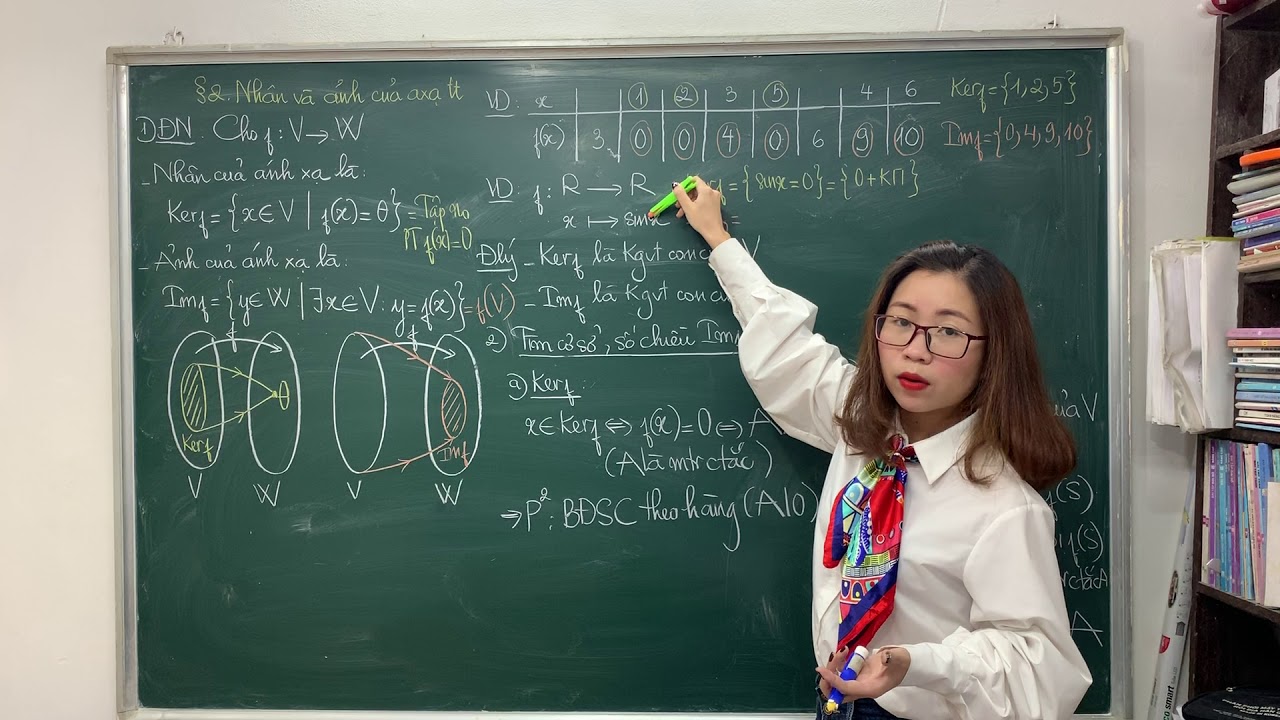 §2. Nhân và ảnh của axạ tt
1) ĐN. Cho f: V → W
- Nhân của ánh xạ là:
Kerf = {x ∈ V | f(x) = θ} = Tập no
PT f(x) = 0
- Ảnh của ánh xạ là:
Imf = {y ∈ W | ∃x ∈ V: y = f(x)} = f(V)
f
Kerf
θ
V
W
f
Imf
V
W
VD: x | | 1 | 2 | 3 | 5 | | 4 | 6
f(x) | 3 | 0 | 0 | 4 | 0 | 6 | 9 | 10
Kerf = {1, 2, 5}
Imf = {0, 4, 9, 10}
VD: f: R → R
= {sinx = 0} = {0 + KΠ}
x ↦ sinx
=
Đlý - Kerf là Kgvt con V
- Imf là Kgvt con
2) Tìm cơ sở, số chiều Im
a) Kerf:
x ∈ Kerf ⇔ f(x) = 0 ⇔ A
(A là mtr ctắc)
⇒ P²: BĐSC theo hàng (A|0)
của V
f(S)
f(S)
ctắc A
A